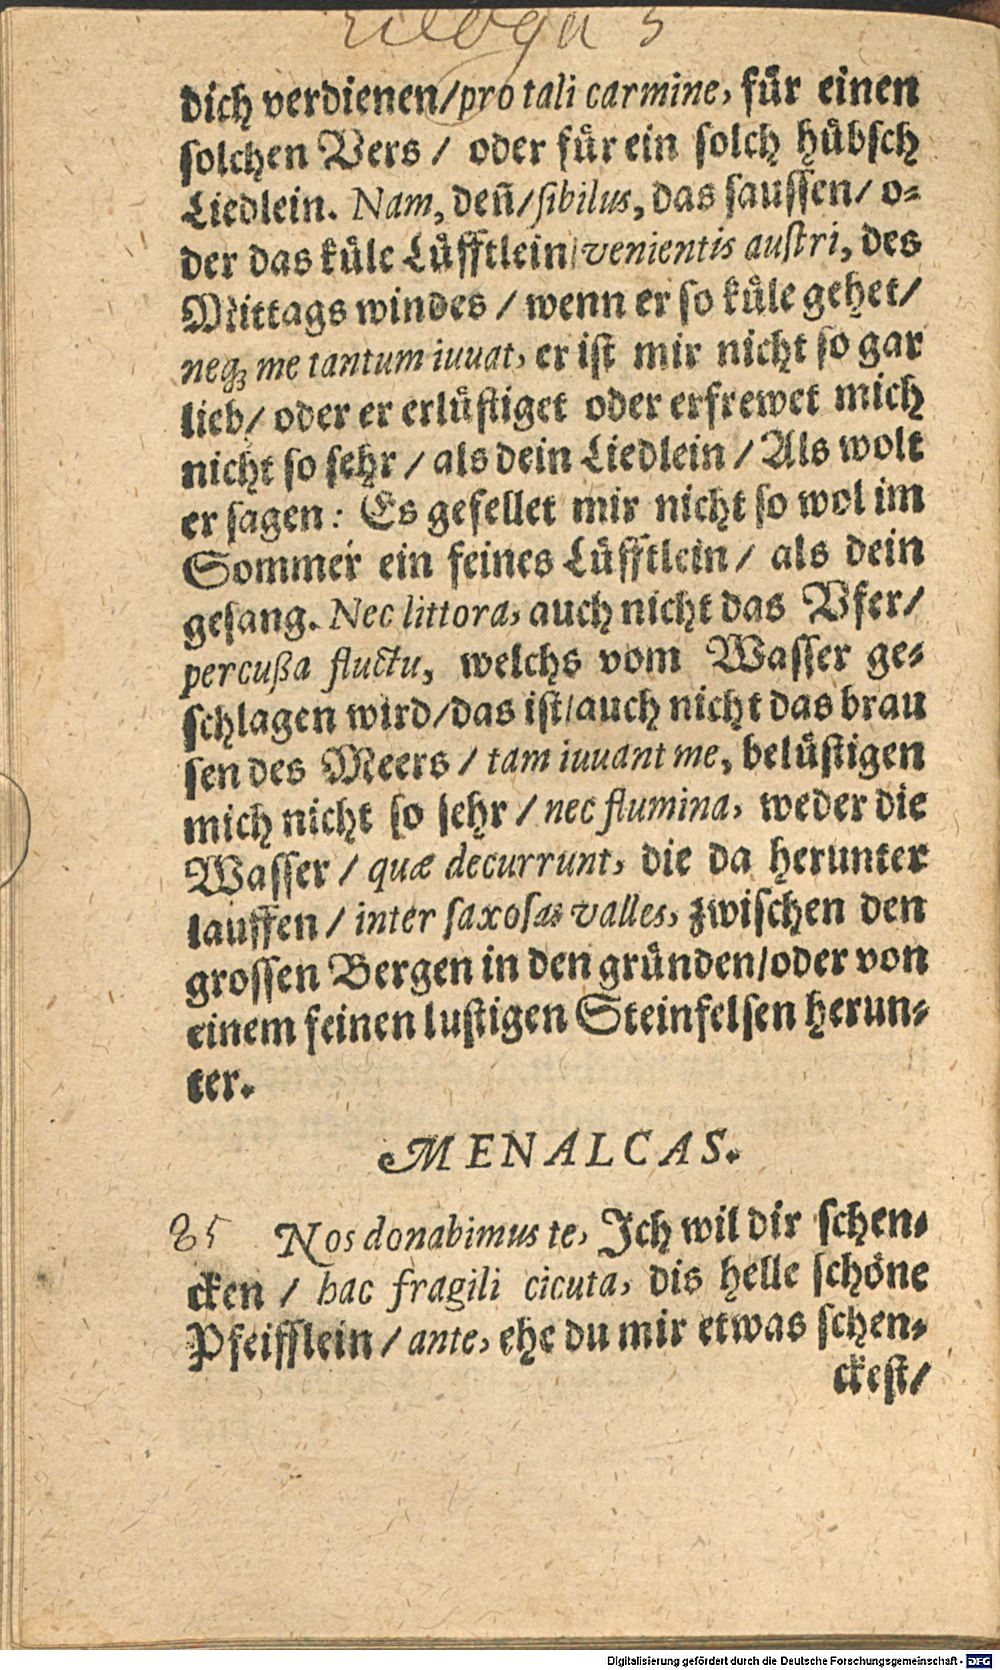 Ecloga 5
dich verdienen/pro tali carmine, fuͤr einen
solchen Vers / oder fuͤr ein solch huͤbsch
Liedlein. Nam, deñ/sibilus, das saussen/ o-
der das kuͤle Luͤfftlein/venientis austri, des
Mittags windes / wenn er so kuͤle gehet/
neq; me tantum iuuat, er ist mir nicht so gar
lieb/ oder er erluͤstiget oder erfrewet mich
nicht so sehr / als dein Liedlein / Als wolt
er sagen: Es gefellet mir nicht so wol im
Sommer ein feines Luͤfftlein/ als dein
gesang. Nec littora, auch nicht das Vfer/
percußa fluctu, welchs vom Wasser ge-
schlagen wird/das ist/auch nicht das brau
sen des Meers / tam iuuant me, beluͤstigen
mich nicht so sehr / nec flumina, weder die
Wasser / quæ decurrunt, die da herunter
lauffen / inter saxosas valles, zwischen den
grossen Bergen in den gruͤnden/oder von
einem feinen lustigen Steinfelsen herun-
ter.
MENALCAS.
85 Nos donabimus te, Ich wil dir schen-
cken / hac fragili cicuta, dis helle schoͤne
Pfeifflein / ante, ehe du mir etwas schen-
ckest/
Digitalisierung gefördert durch die Deutsche Forschungsgemeinschaft - DFG